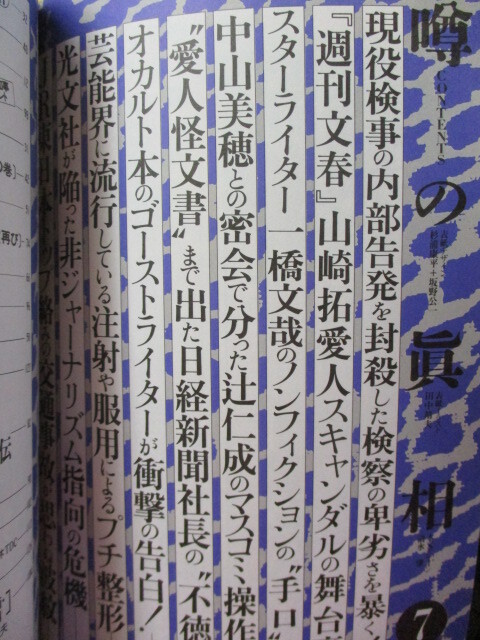 噂の眞相
CONTENTS
7
現役検事の内部告発を封殺した検察の卑劣さを暴く
『週刊文春』山崎拓愛人スキャンダルの舞台
スターライター一橋文哉のノンフィクションの“手口”
中山美穂との密会で分った辻仁成のマスコミ操作
“愛人怪文書”まで出た日経新聞社長の“不徳
オカルト本のゴーストライターが衝撃の告白！
芸能界に流行している注射や服用によるプチ整形
光文社が陥った非ジャーナリズム指向の危機
JR東日本トップ